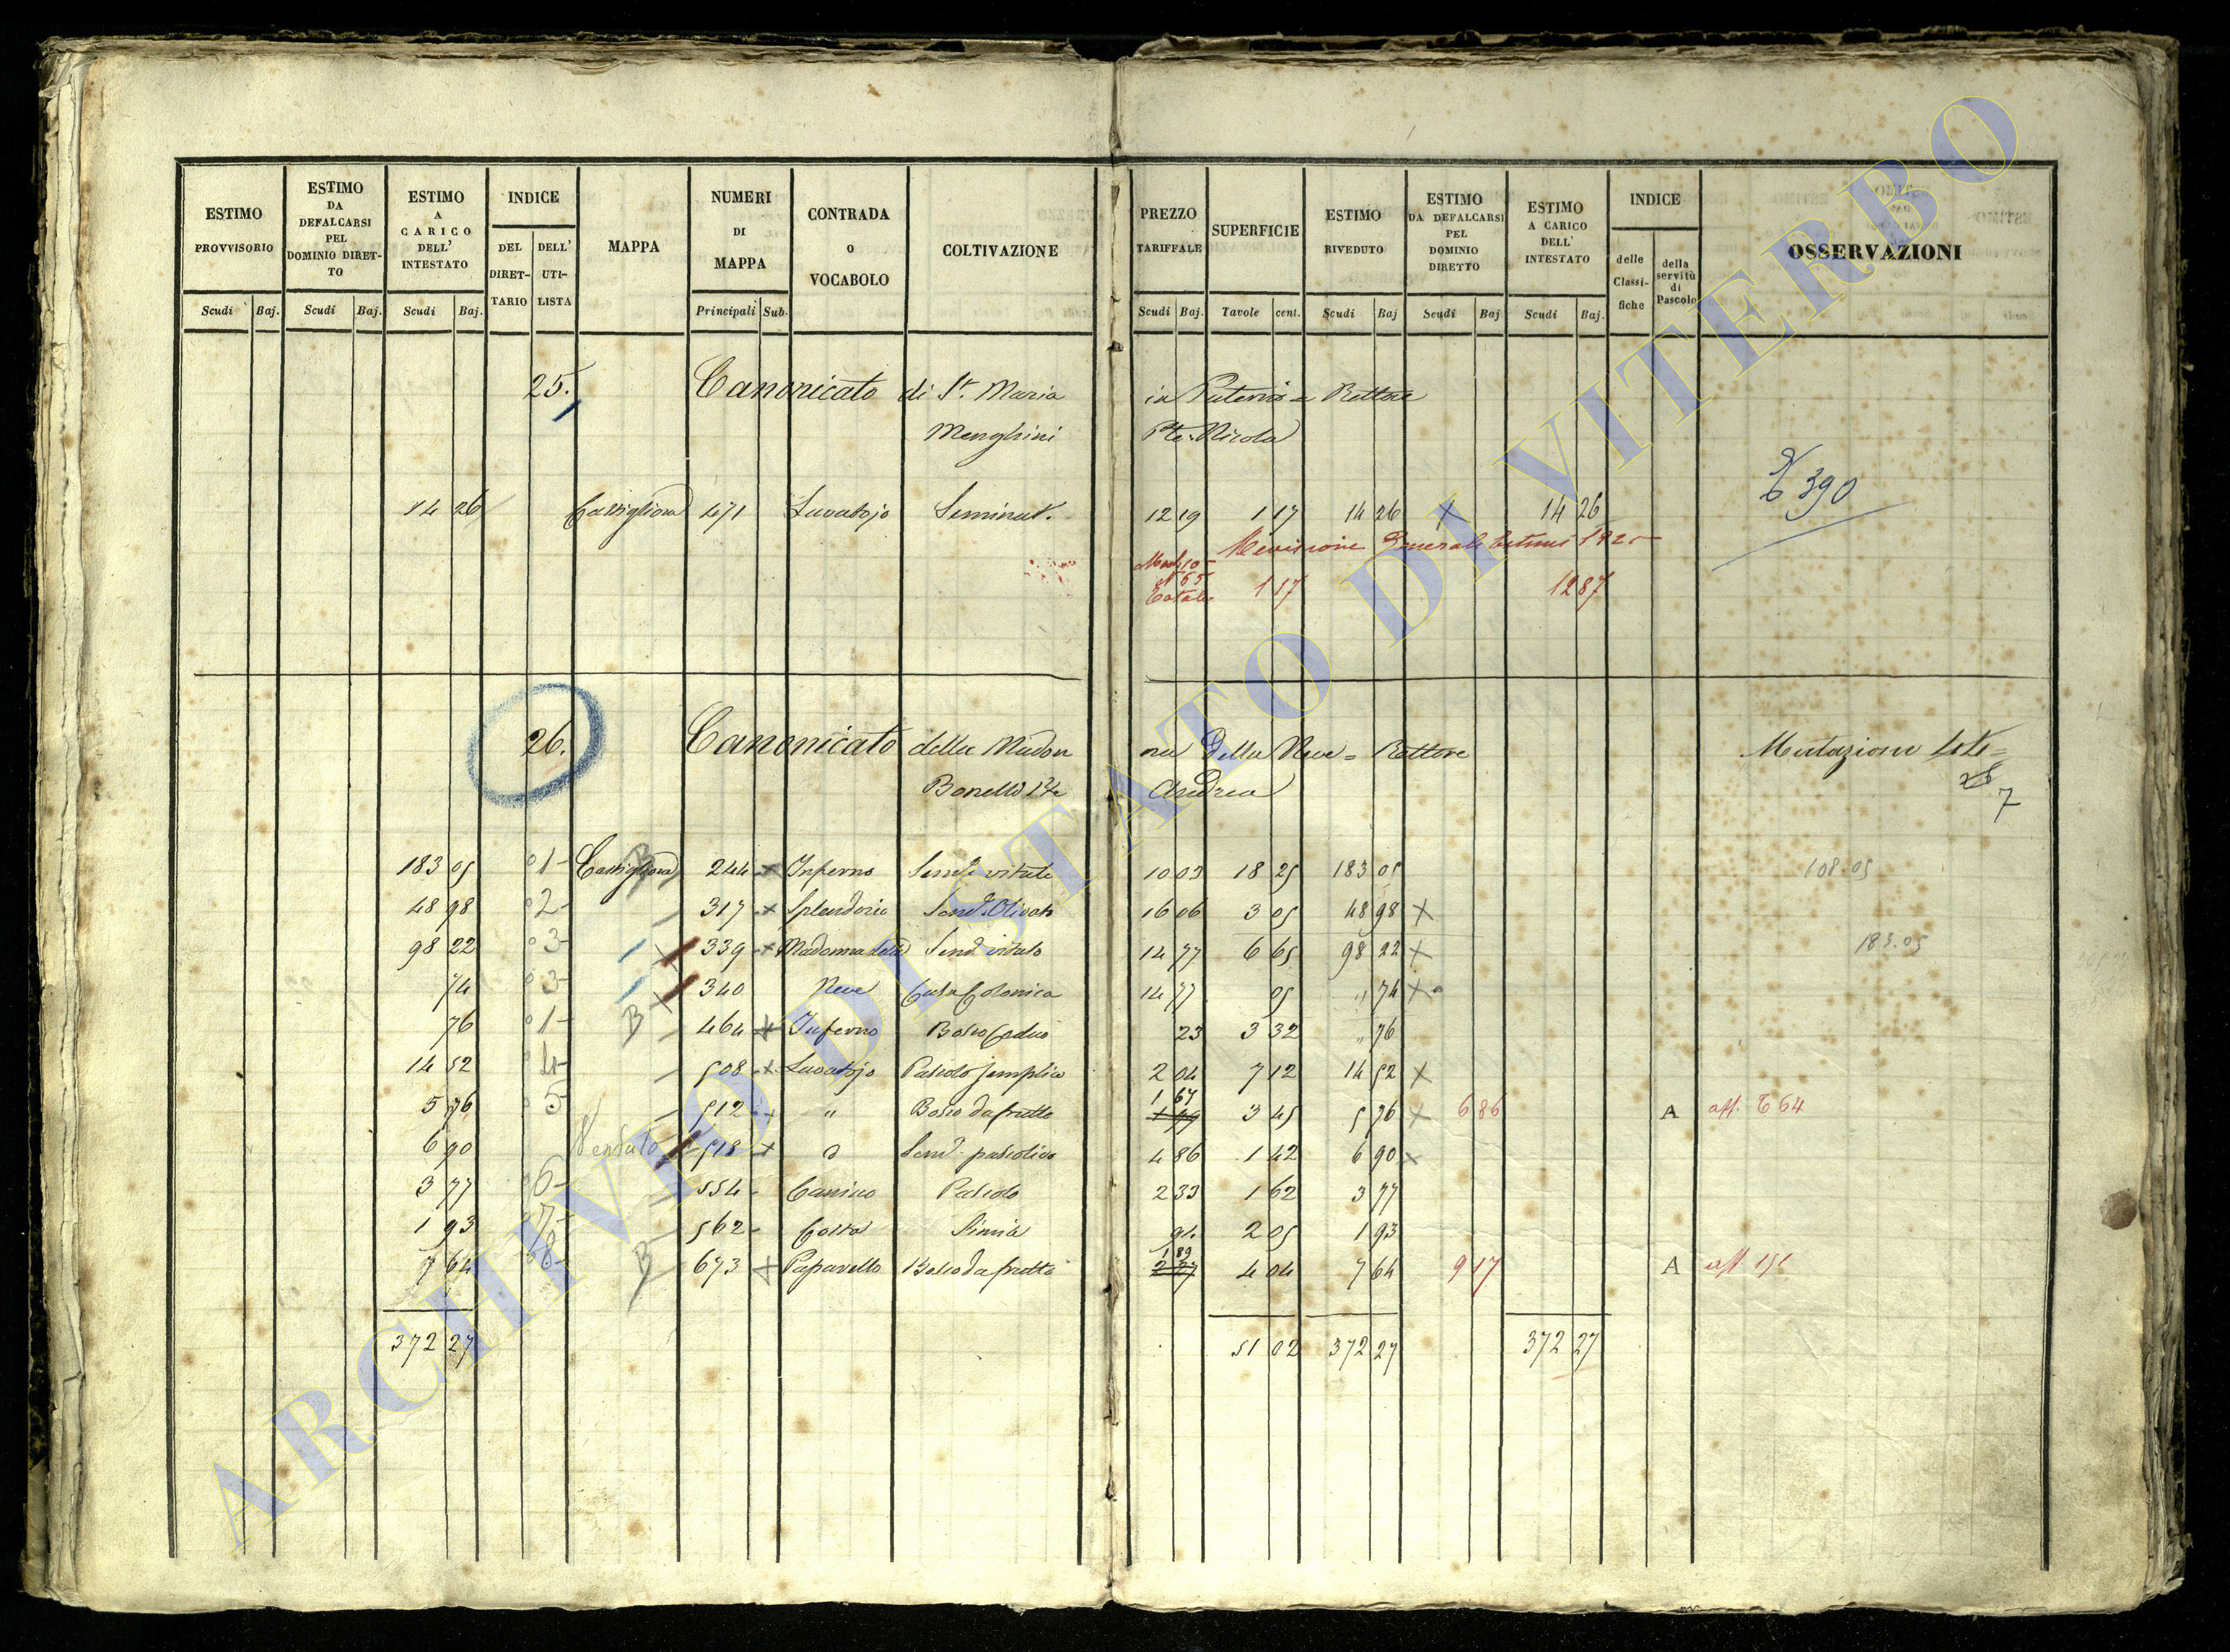 ESTIMO PROVVISORIO | ESTIMO DA DEFALCARSI PEL DOMINIO DIRET-TO | ESTIMO A CARICO DELL' INTESTATO | INDICE DEL DIRET-TARIO | DELL' UTI-LISTA | MAPPA | NUMERI DI MAPPA | CONTRADA O VOCABOLO | COLTIVAZIONE | PREZZO TARIFFALE | SUPERFICIE | ESTIMO RIVEDUTO | ESTIMO DA DEFALCARSI PEL DOMINIO DIRETTO | ESTIMO A CARICO DELL' INTESTATO | INDICE delle Classi-fiche | della servitù di Pascolo | OSSERVAZIONI
Scudi Baj. Scudi Baj. Scudi Baj. Principali Sub. Scudi Baj. Tavole cent. Scudi Baj Scudi Baj Scudi Baj.
25. Canonicato di S. Maria in = Rettore
Menghini Nicola
390
14 26 Castiglione 471 Lavatojo Seminat. 12 19 1 17 14 26 X 14 26
Revisione Generale 192
Mod 10
N 65
Totale 1 17 12 87
26. Canonicato della Madonna Della Neve = Rettore Mutazione
Andrea
7
183 05 01- Castiglione 244 + Inferno Semi vitato 10 03 18 25 183 05 108.05
48 98 02- 317 + Splendorio Semo Olivato 16 06 3 05 48 98 X
98 22 03- 339 + Madonna della Semo vitato 14 77 6 65 98 22 X 183.05
74 03- 340 Neve Casa Colonica 14 77 05 " 74 X
76 01- B 464 + Inferno Bosco Ceduo 23 3 32 " 76
14 52 4- 508 + Lavatojo Pascolo semplice 2 04 7 12 14 52 X
5 76 05 512 " Bosco da frutto 1 67 3 45 5 76 X 6 86 A aff. 64
6 90 Venduto 518 + Semo pascolivo 4 86 1 42 6 90 X
3 77 06- 554 Canino Pascolo 2 33 1 62 3 77
1 93 07- 562 Costa Simile 94 2 05 1 93
7 64 08- B 673 + Paparello Bosco da frutto 1 89 4 04 7 64 9 17 A aff 151
372 27 51 02 372 27 372 27
ARCHIVIO DI STATO DI VITERBO